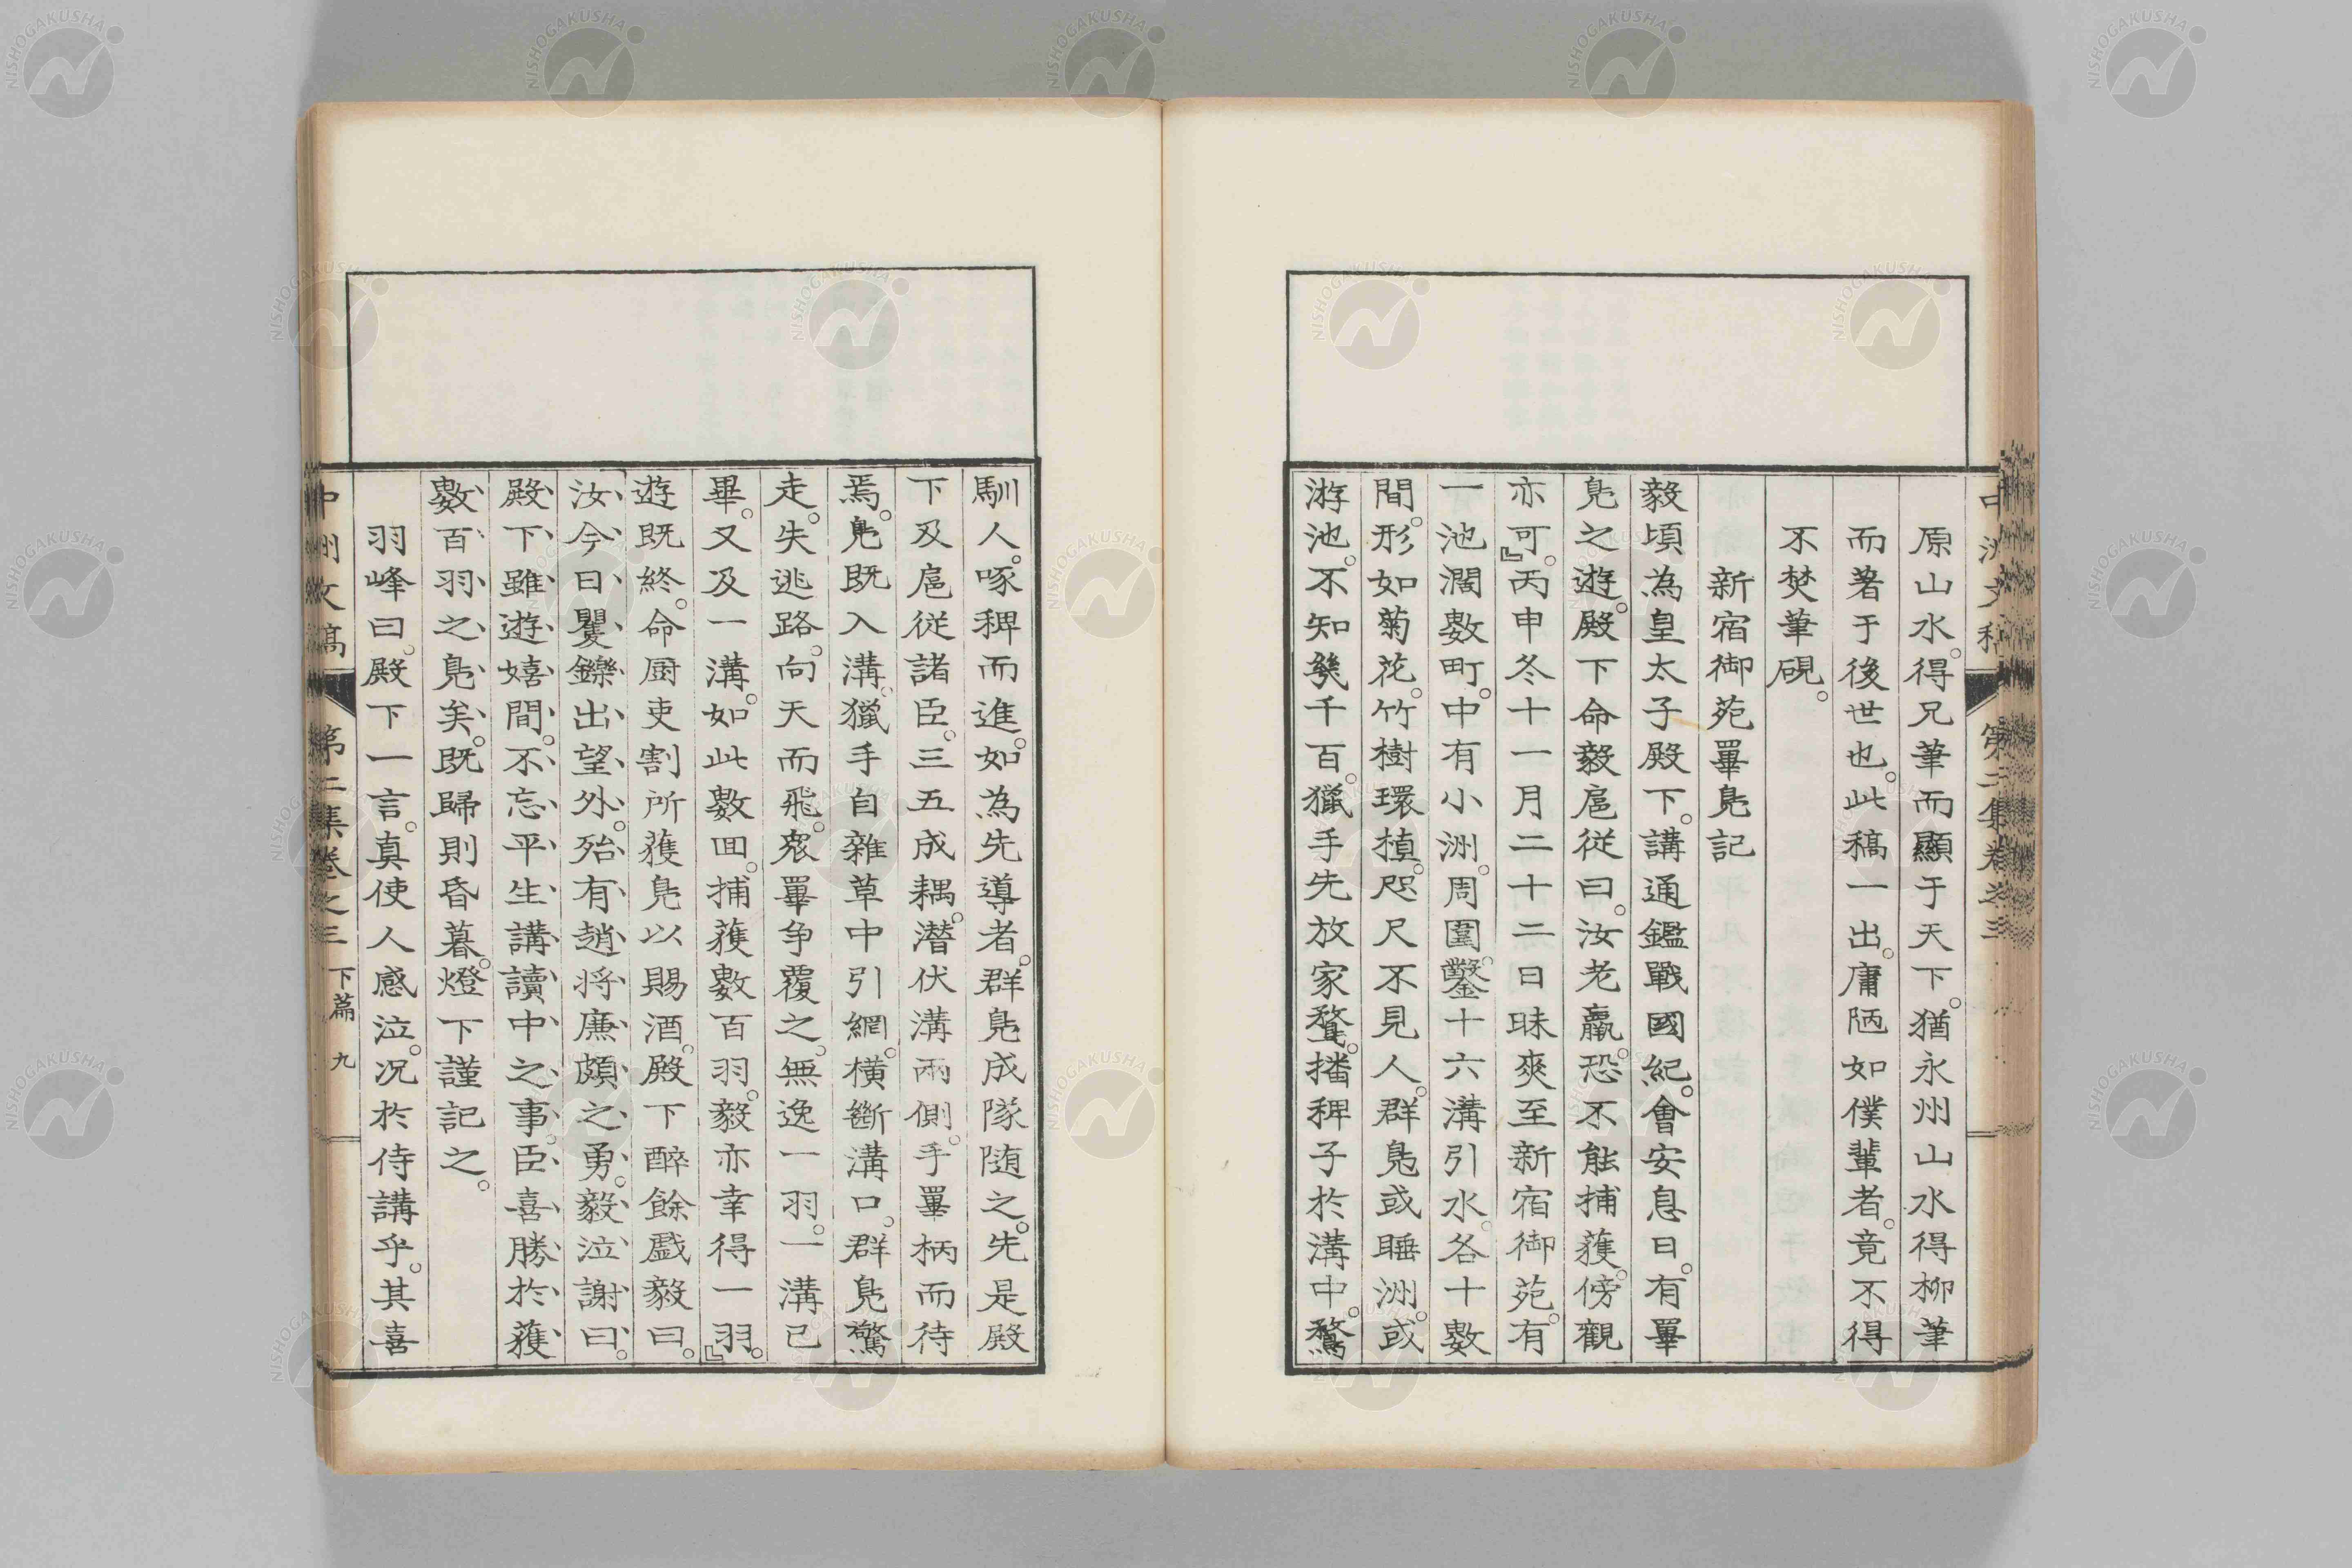 原山水。得兄筆而顯于天下。猶永州山水得柳筆
而著于後世也。此稿一出。庸陋如僕輩者。竟不得
不焚筆硯。
新宿御苑畢鳧記
毅頃為皇太子殿下。講通鑑戰國紀。會安息日。有畢
鳧之遊。殿下命毅扈從曰。汝老羸。恐不能捕獲。傍觀
亦可。』丙申冬十一月二十二日昧爽至新宿御苑。有
一池濶數町。中有小洲。周圍鑿十六溝引水。各十數
間。形如菊花。竹樹環植。咫尺不見人。群鳧或睡洲。或
游池。不知幾千百。獵手先放家鶩。播稗子於溝中。鶩
馴人。啄稗而進。如為先導者。群鳧成隊随之。先是殿
下及扈従諸臣。三五成耦。潜伏溝兩側。手畢柄而待
焉。鳧既入溝。獵手自雜草中引網。横斷溝口。群鳧驚
走。失逃路。向天而飛。衆畢争覆之。無逸一羽。一溝已
畢。又及一溝。如此數回。捕獲數百羽。毅亦幸得一羽。』
遊既終。命厨吏割所獲鳧以賜酒。殿下醉餘戯毅曰。
汝今日矍鑠出望外。殆有趙将廉頗之勇。毅泣謝曰。
殿下雖遊嬉間。不忘平生講讀中之事。臣喜勝於獲
數百羽之鳧矣。既歸則昏暮。燈下謹記之。
羽峰曰。殿下一言。真使人感泣。况於侍講乎。其喜
中洲文稿 第二集卷之三 下篇 九
NISHOGAKUSHA